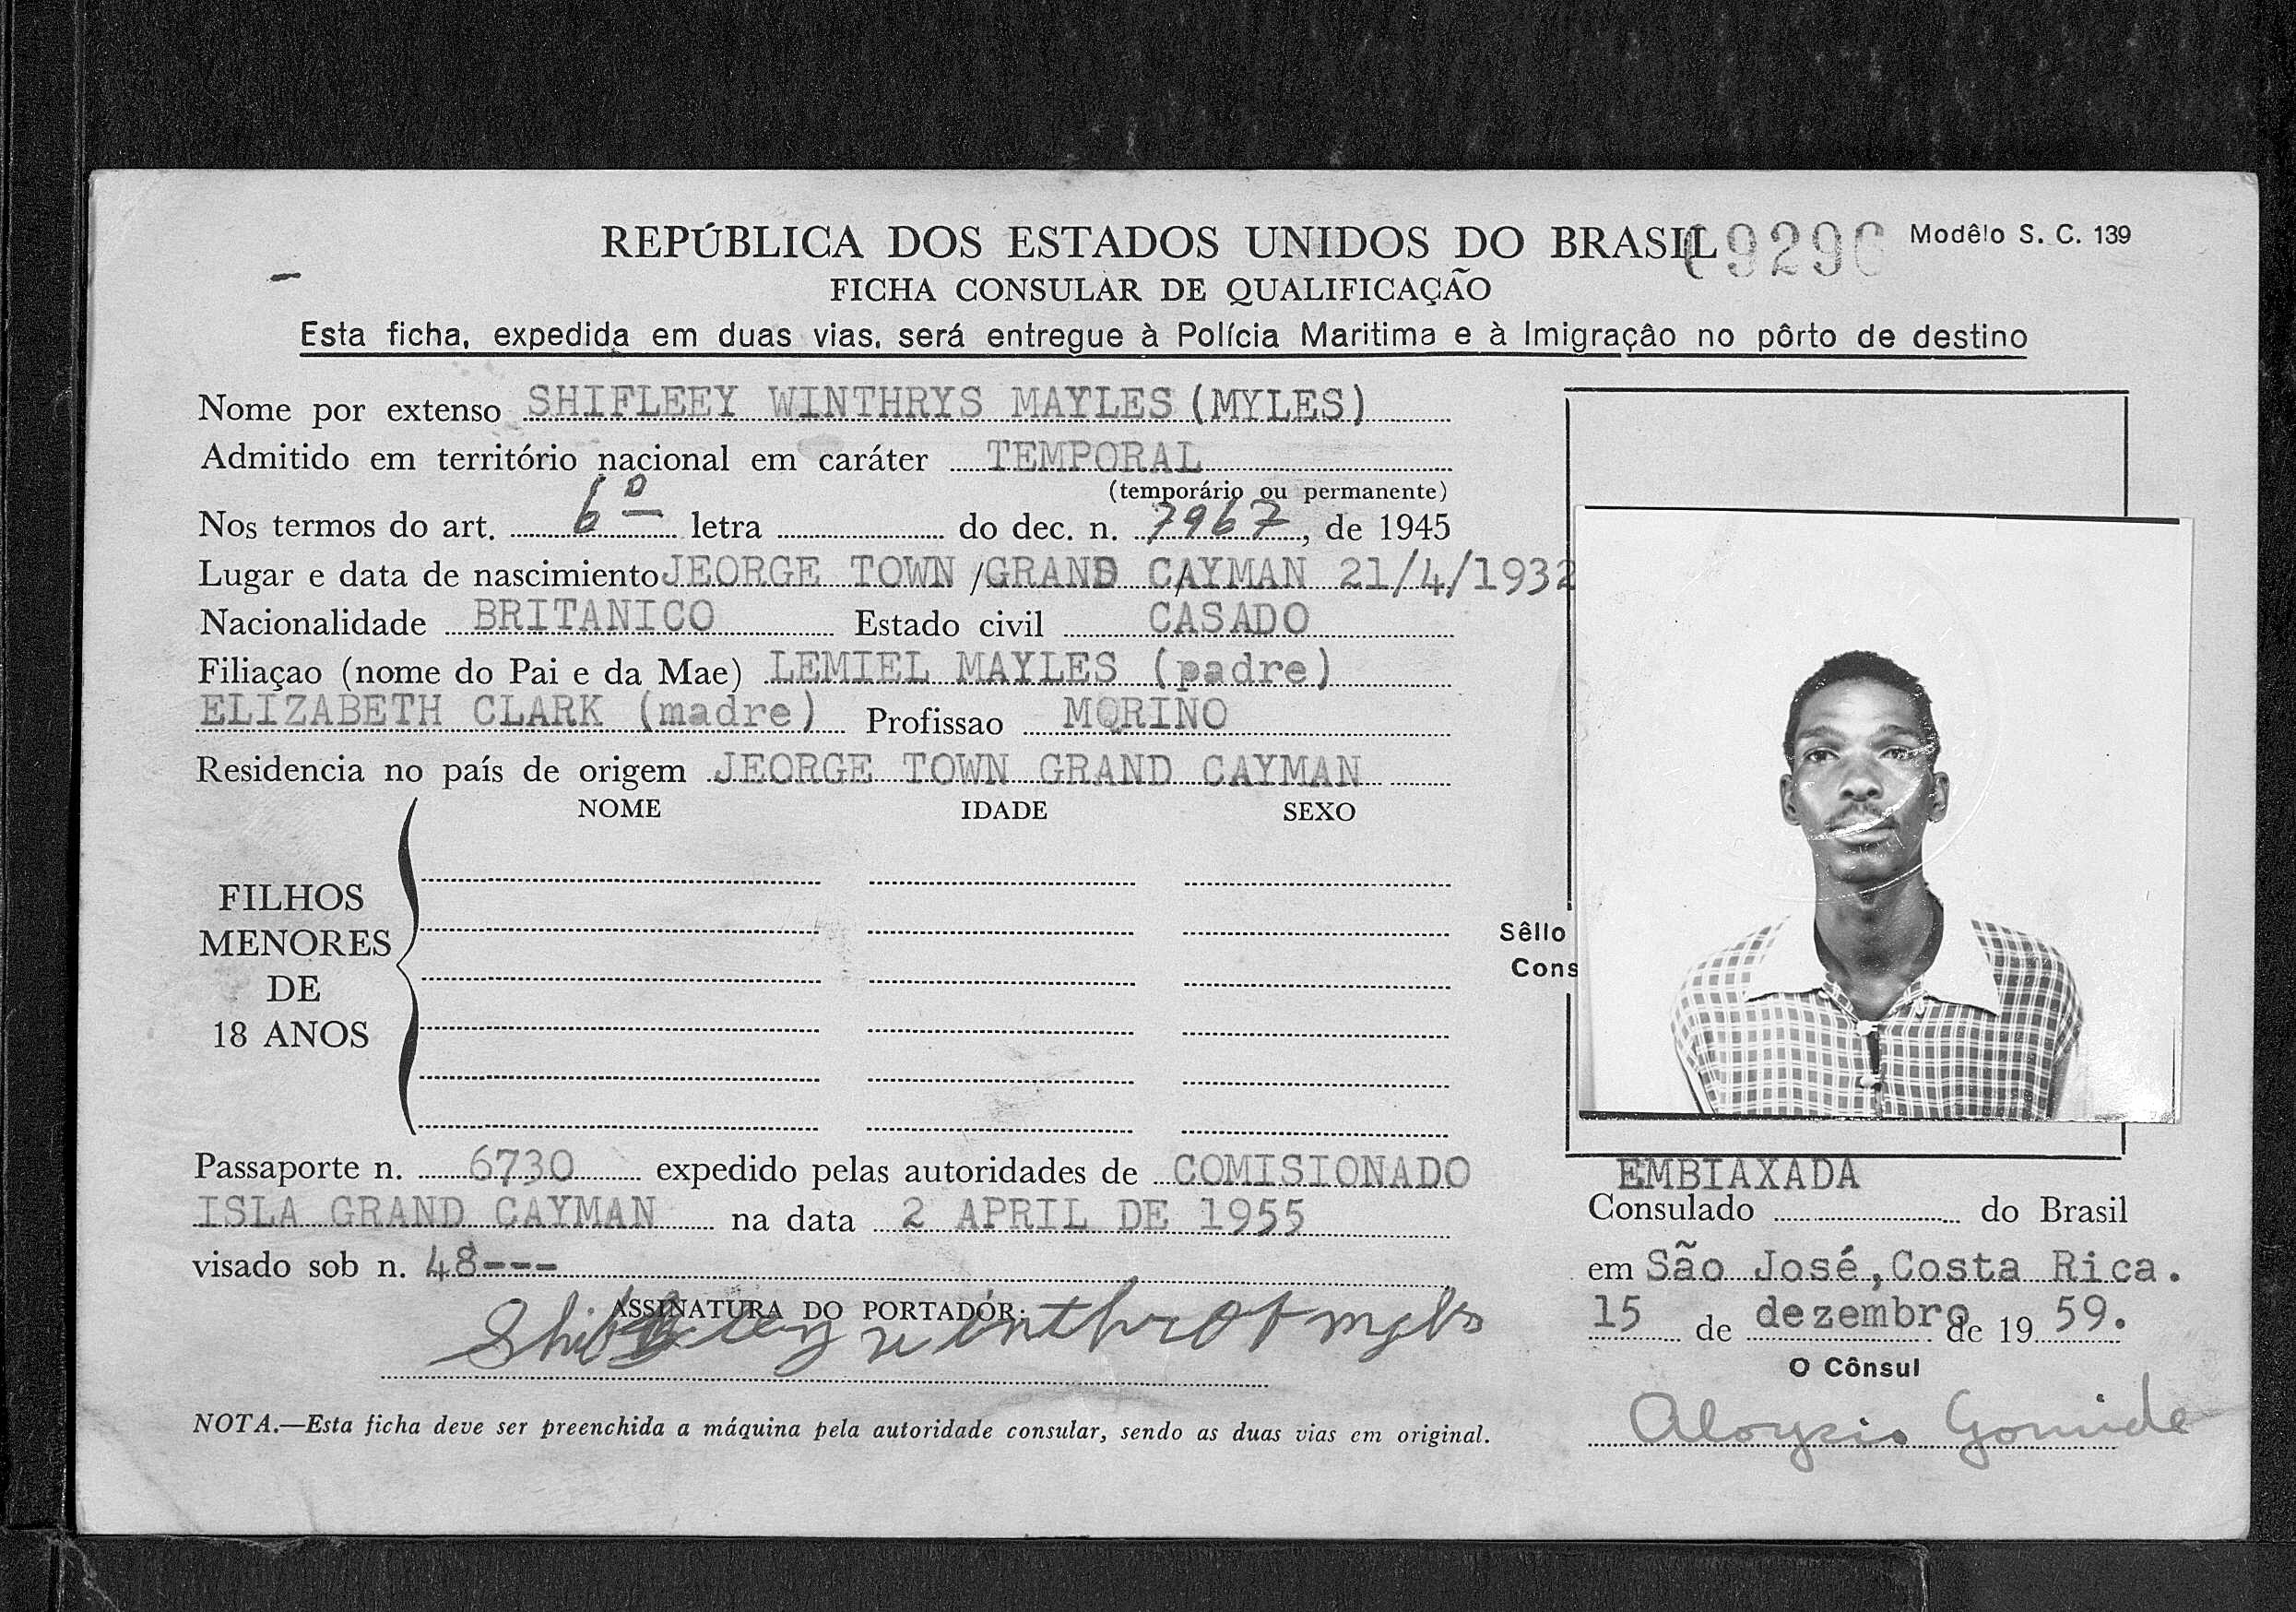 REPÚBLICA DOS ESTADOS UNIDOS DO BRASIL 9296 Modêlo S. C. 139
FICHA CONSULAR DE QUALIFICAÇÃO
Esta ficha, expedida em duas vias, será entregue à Polícia Maritima e à Imigração no pôrto de destino
Nome por extenso SHIFLEEY WINTHRYS MAYLES (MYLES)
Admitido em território nacional em caráter TEMPORAL
(temporário ou permanente)
Nos termos do art. 6º letra do dec. n. 7967, de 1945
Lugar e data de nascimiento JEORGE TOWN /GRAND CAYMAN 21/4/1932
Nacionalidade BRITANICO Estado civil CASADO
Filiaçao (nome do Pai e da Mae) LEMIEL MAYLES (padre)
ELIZABETH CLARK (madre) Profissao MORINO
Residencia no país de origem JEORGE TOWN GRAND CAYMAN
NOME IDADE SEXO
FILHOS
MENORES
DE
18 ANOS
Sêllo
Cons
Passaporte n. 6730 expedido pelas autoridades de COMISIONADO
ISLA GRAND CAYMAN na data 2 APRIL DE 1955
visado sob n. 48---
ASSINATURA DO PORTADOR:
EMBIAXADA
Consulado do Brasil
em São José, Costa Rica.
15 de dezembro de 19 59.
O Cônsul
Aloysio Gomide
NOTA.—Esta ficha deve ser preenchida a máquina pela autoridade consular, sendo as duas vias em original.